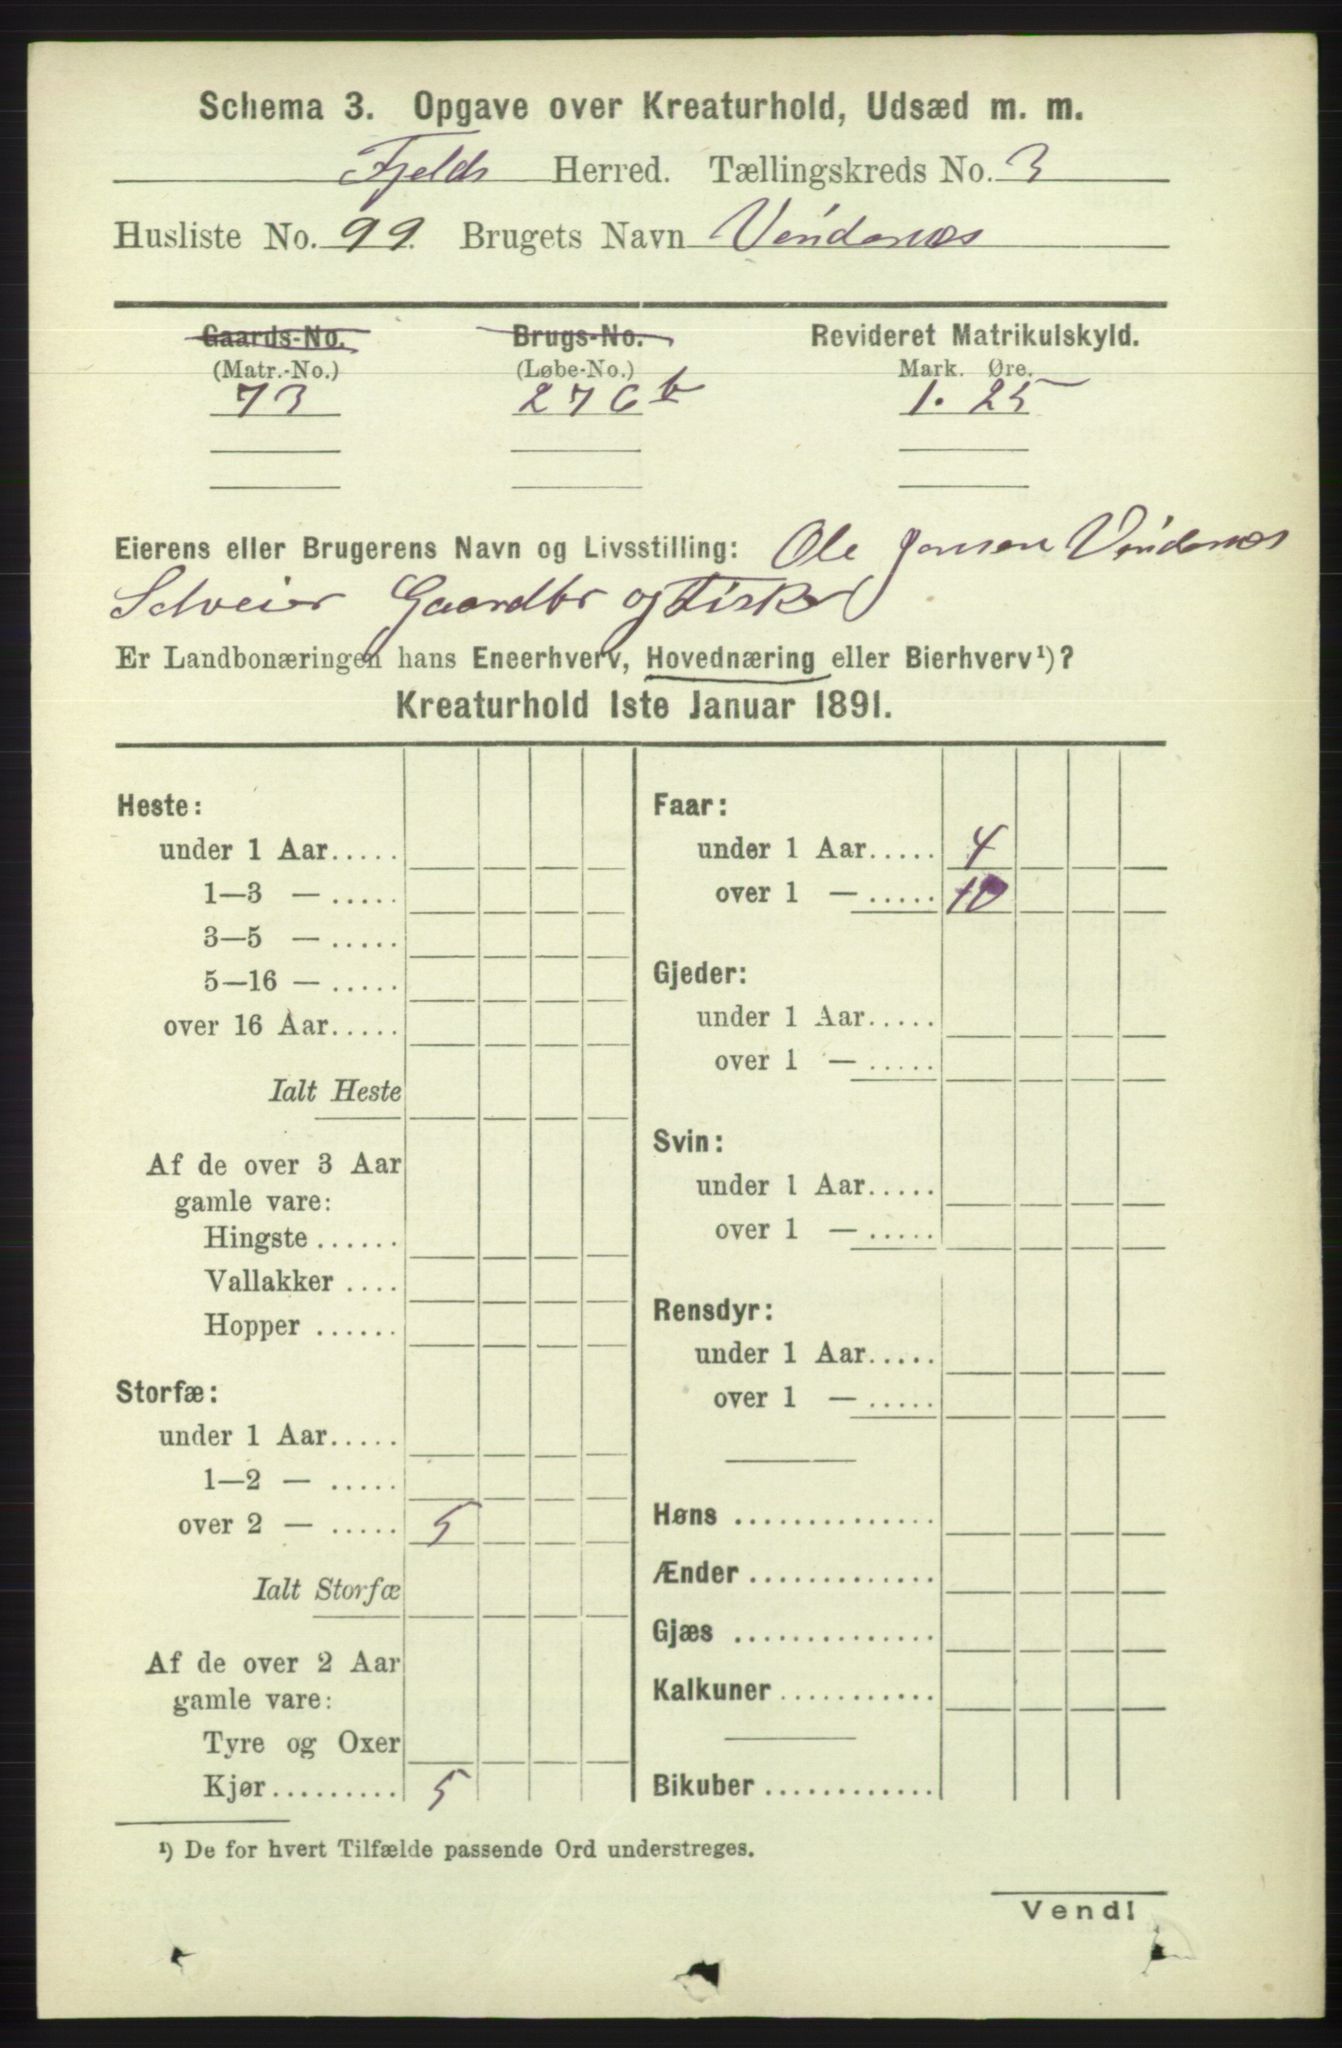 Schema 3. Opgave over Kreaturhold, Udsæd m. m.
Fjelds Herred. Tællingskreds No. 3
Husliste No. 99. Brugets Navn Vindenæs
Gaards-No. Brugs-No. Revideret Matrikulskyld.
(Matr.-No.) (Løbe-No.) Mark. Øre.
73 276 b 1. 25
Eierens eller Brugerens Navn og Livsstilling: Ole Jonsen Vindenæs
Selveier Gaardbr og Fisker
Er Landbonæringen hans Eneerhverv, Hovednæring eller Bierhverv¹)?
Kreaturhold 1ste Januar 1891.
Heste:
under 1 Aar.....
1—3 — .....
3—5 — .....
5—16 — .....
over 16 Aar.....
Ialt Heste
Af de over 3 Aar
gamle vare:
Hingste ......
Vallakker ....
Hopper ......
Storfæ:
under 1 Aar.....
1—2 — .....
over 2 — ..... 5
Ialt Storfæ
Af de over 2 Aar
gamle vare:
Tyre og Oxer
Kjør......... 5
Faar:
under 1 Aar..... 4
over 1 — ..... 10
Gjeder:
under 1 Aar.....
over 1 — .....
Svin:
under 1 Aar.....
over 1 — .....
Rensdyr:
under 1 Aar.....
over 1 — .....
Høns ..............
Ænder .............
Gjæs ..............
Kalkuner ...........
Bikuber ............
¹) De for hvert Tilfælde passende Ord understreges.
Vend!